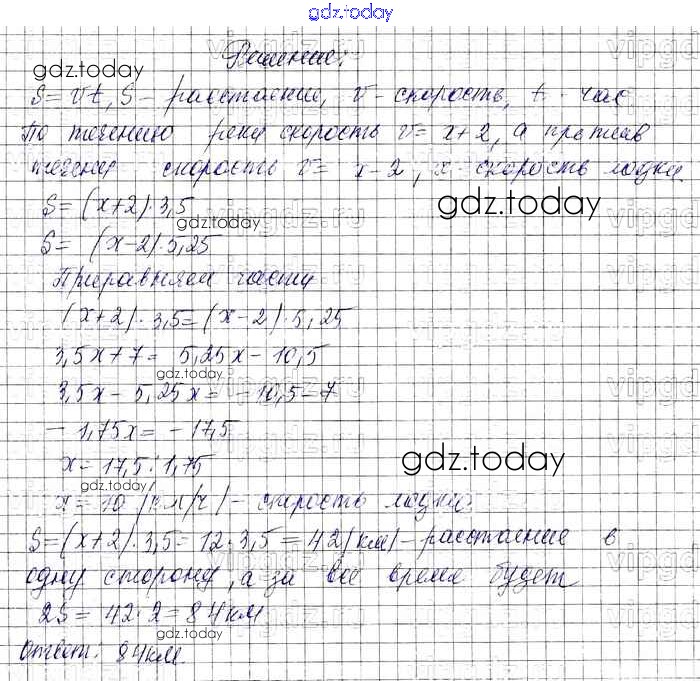 gdz.today
Решение:
gdz.today
S = vt, S - расстояние, v - скорость, t - час
По течению реки скорость v = x+2, а против
течения скорость v = x-2, x - скорость лодки.
S = (x+2)·3,5
gdz.today
gdz.today
S = (x-2)·5,25
Приравняем части
(x+2)·3,5 = (x-2)·5,25
3,5x+7 = 5,25x-10,5
gdz.today
3,5x - 5,25x = -10,5-7
-1,75x = -17,5
x = 17,5:1,75
gdz.today
gdz.today
x = 10 (км/ч) - скорость лодки.
S = (x+2)·3,5 = 12·3,5 = 42 (км) - расстояние в
одну сторону, а за все время будет
2S = 42·2 = 84 км
gdz.today
Ответ: 84 км